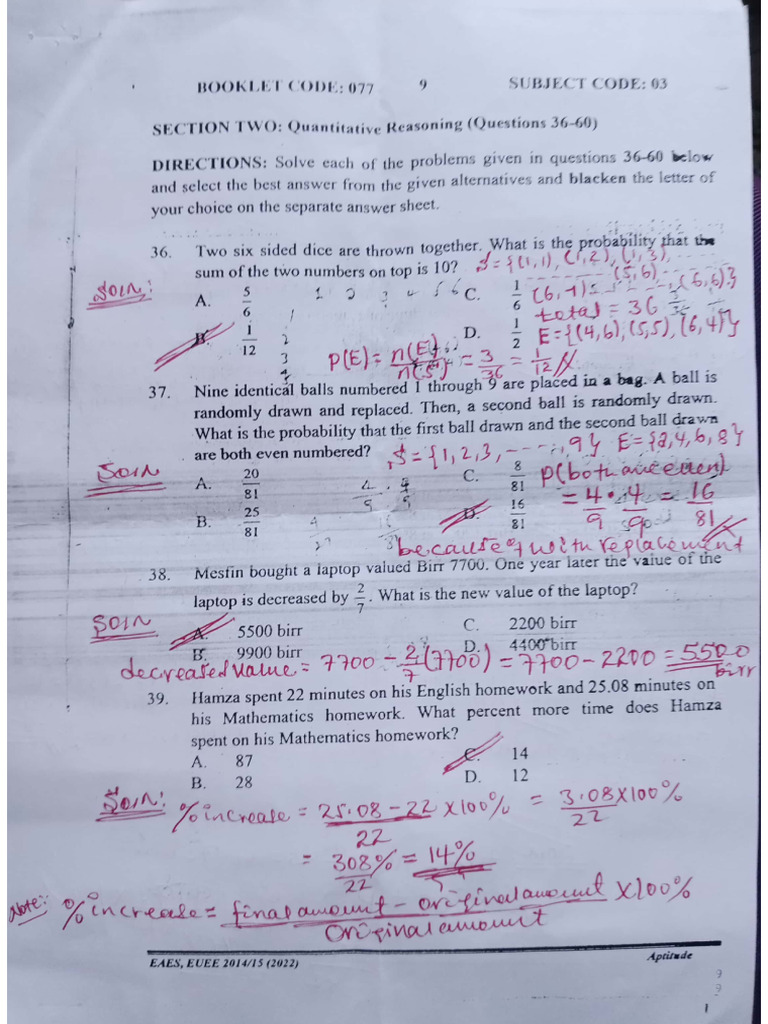 BOOKLET CODE: 077 9 SUBJECT CODE: 03
SECTION TWO: Quantitative Reasoning (Questions 36-60)
DIRECTIONS: Solve each of the problems given in questions 36-60 below
and select the best answer from the given alternatives and blacken the letter of
your choice on the separate answer sheet.
36. Two six sided dice are thrown together. What is the probability that the
sum of the two numbers on top is 10? S = {(1,1), (1,2), (1,3),
(5,6)
Soln:
A. 5/6 C. 1/6 (6,1) - - - -, (6,6)}
total = 36
B. 1/12 D. 1/2 E = {(4,6), (5,5), (6,4)}
P(E) = n(E)/n(S) = 3/36 = 1/12
37. Nine identical balls numbered 1 through 9 are placed in a bag. A ball is
randomly drawn and replaced. Then, a second ball is randomly drawn.
What is the probability that the first ball drawn and the second ball drawn
are both even numbered? S = {1, 2, 3, - - - -, 9} E = {2,4,6,8}
Soln
A. 20/81 C. 8/81 P(both are even)
= 4/9 • 4/9 = 16/81
B. 25/81 D. 16/81
because of with replacement
38. Mesfin bought a laptop valued Birr 7700. One year later the value of the
laptop is decreased by 2/7. What is the new value of the laptop?
Soln
A. 5500 birr C. 2200 birr
B. 9900 birr D. 4400 birr
decreased value = 7700 - 2/7 (7700) = 7700 - 2200 = 5500
birr
39. Hamza spent 22 minutes on his English homework and 25.08 minutes on
his Mathematics homework. What percent more time does Hamza
spent on his Mathematics homework?
A. 87 C. 14
B. 28 D. 12
Soln:
% increase = 25.08 - 22/22 x 100% = 3.08 x 100%/22
= 308%/22 = 14%
Note: % increase = final amount - original amount/Original amount x 100%
EAES, EUEE 2014/15 (2022) Aptitude
9
9
1